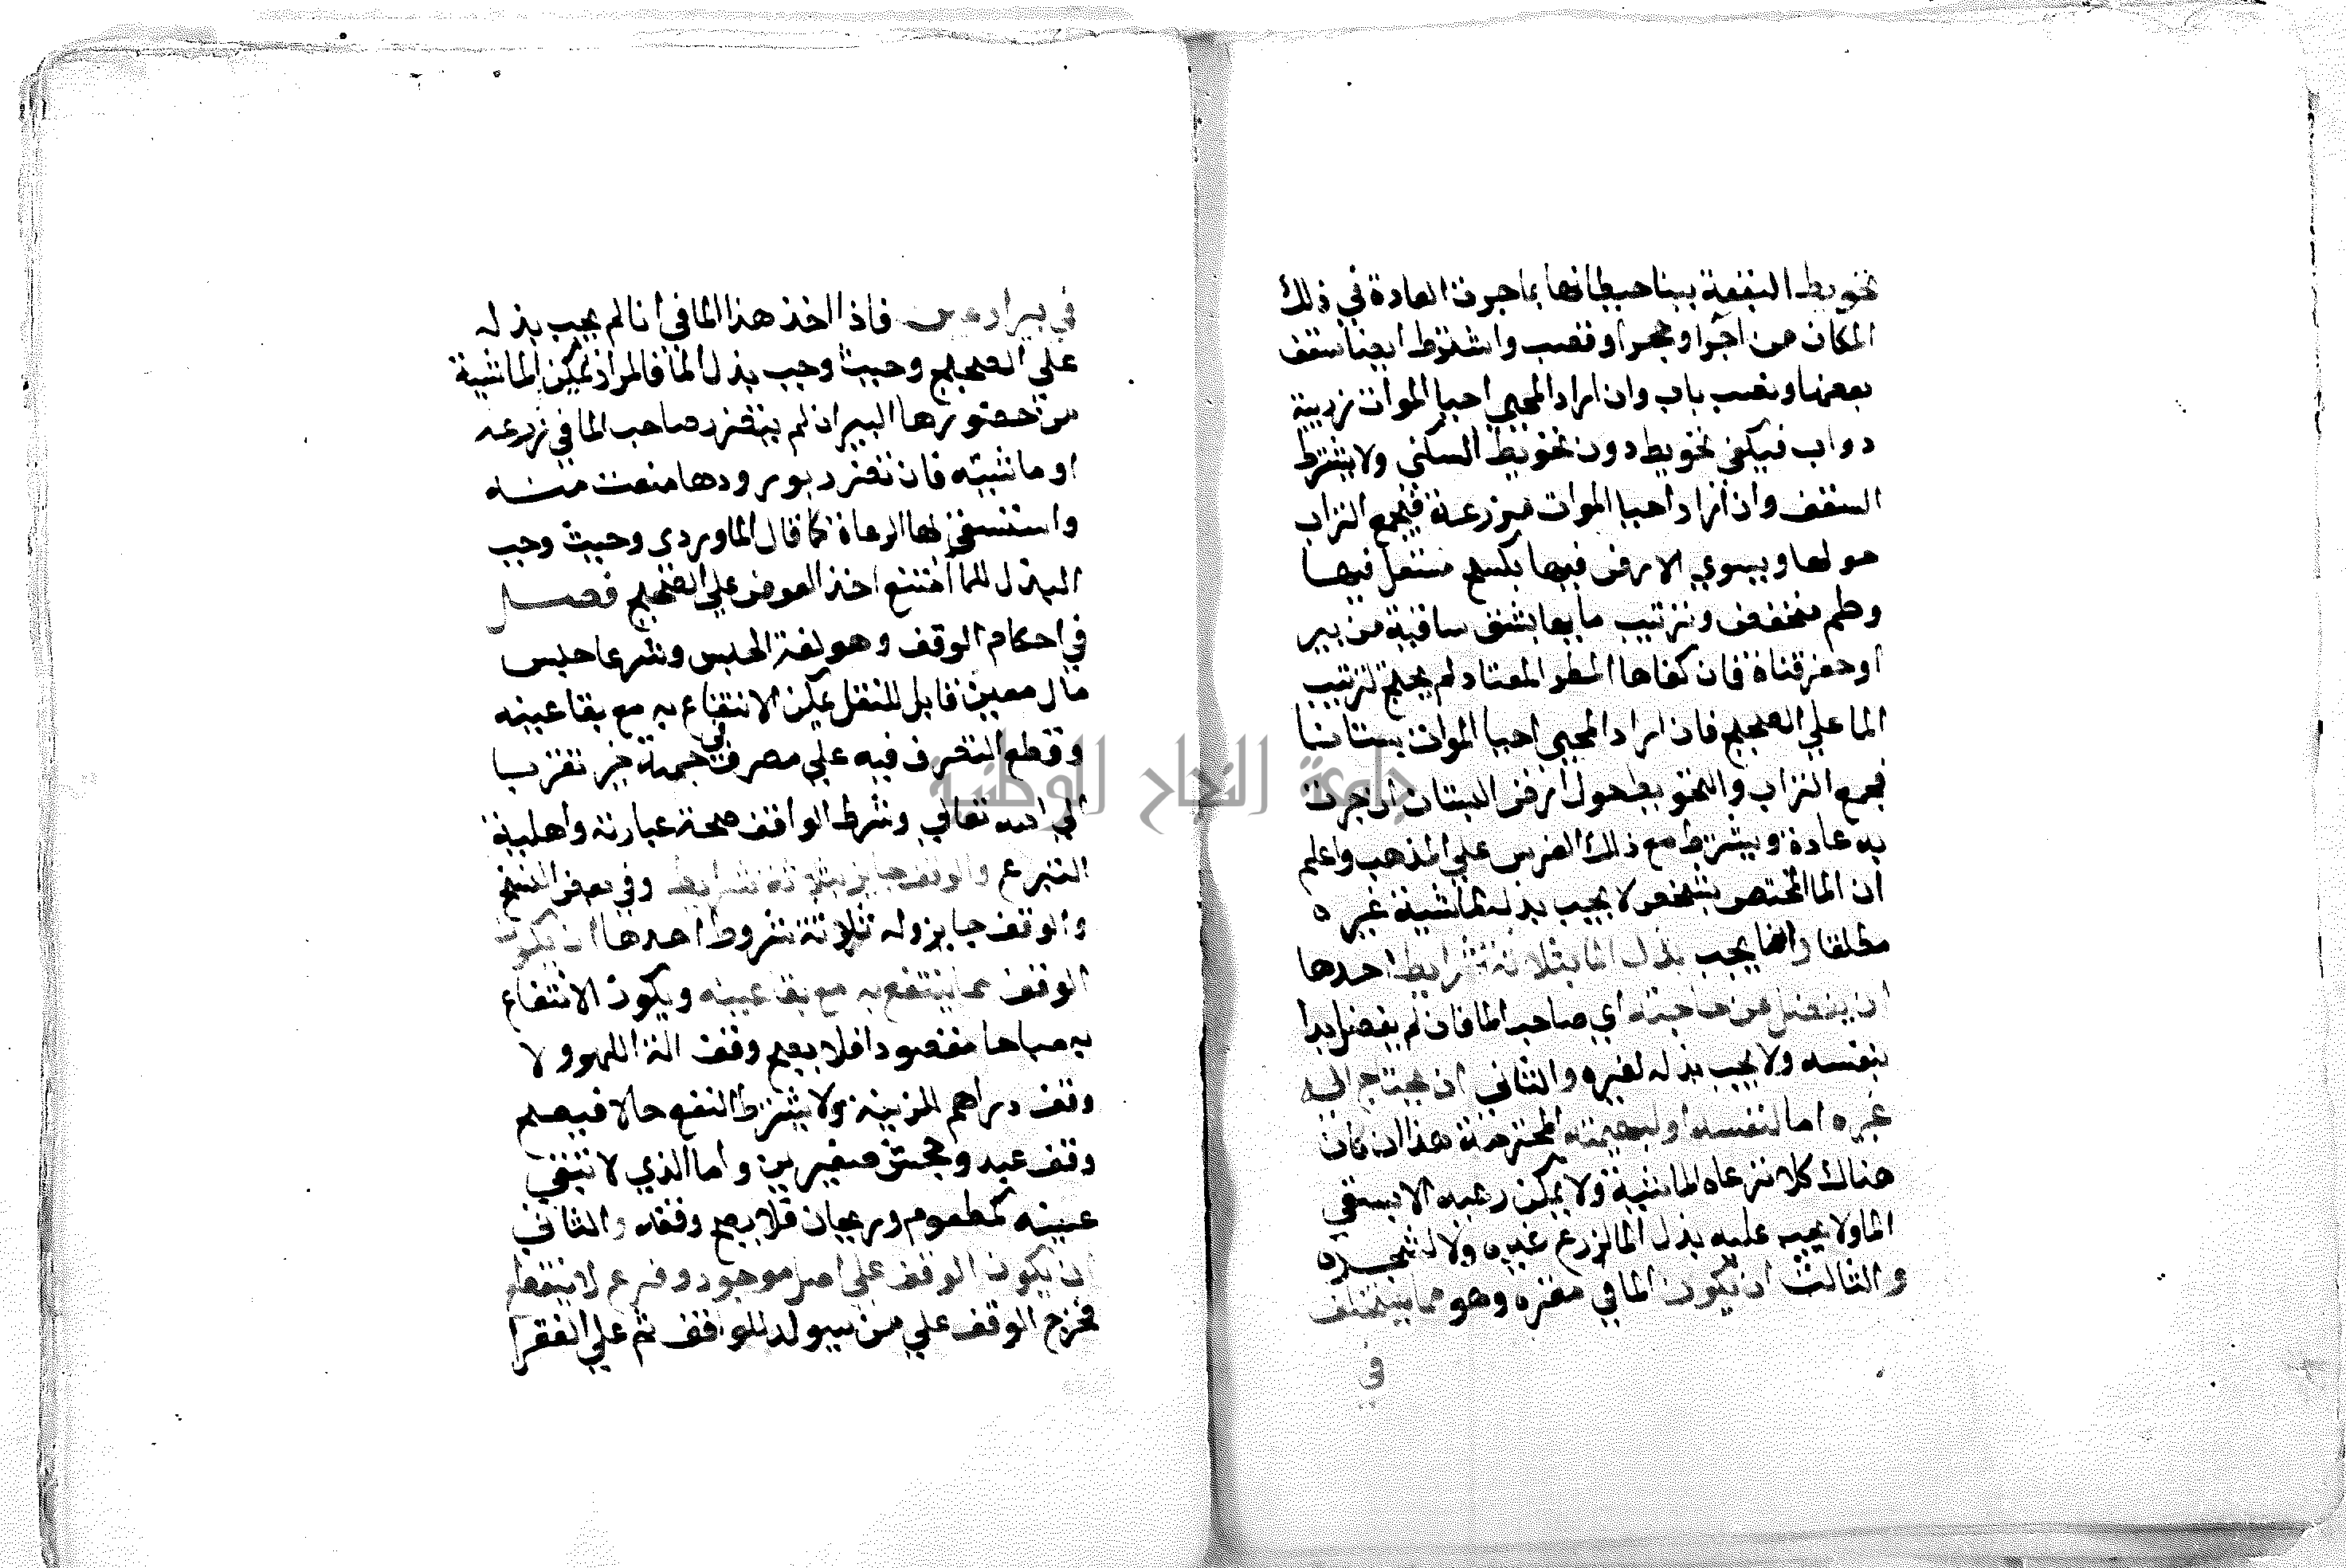 تحويط البقعة ببنا حيطانها بما جرت العادة في ذلك
المكان من آجر او حجر او قصب واشترط ايضا سقف
بعضها ونصب باب وان اراد المحيي احيا الموات زريبة
دواب فيكفي تحويط دون تحويط السكني ولا يشترط
السقف وان اراد احيا الموات مزرعة فيجمع التراب
حولها ويسوي الارض فيها بكسح مستعل فيها
وطم منخفض وترتيب ما بها بشق ساقية من بير
او حفر قناة فان كفاها المطر المعتاد لم يحتج لترتيب
الما علي الصحيح فان اراد المحيي احيا الموات بستانا
فجمع التراب والتحويط حول ارض البستان ان جرت
به عادة ويشترط مع ذلك الغرس علي المذهب واعلم
ان الما المختص بشخص لا يجب بذله لماشية غيره
مطلقا وانما يجب بذل الما بثلاثة شرايط احدها
ان يفضل عن حاجته اي صاحب الما فان لم يفضل بدا
بنفسه ولا يجب بذله لغيره والثاني ان يحتاج اليه
غيره اما لنفسه او لبهيمته المحترمة هذا ان كان
هناك كلا ترعاه الماشية ولا يمكن رعيه الا بسقي
الما ولا يجب عليه بذل الما لزرع غيره ولا لشجره
والثالث ان يكون الما في مقره وهو مما يستخلف
في
في بير او عين فاذا اخذ هذا الما في انا لم يجب بذله
علي الصحيح وحيث وجب بذل الما فالمراد تمكين الماشية
من حضورها البير ان لم يتضرر صاحب الما في زرعه
او ماشيته فان تضرر بورودها منعت منه
واستسقي لها الرعاة كما قال الماوردي وحيث وجب
البذل للما امتنع اخذ العوض علي الصحيح فصل
في احكام الوقف وهو لغة الحبس وشرعا حبس
مال معين قابل للنقل يمكن الانتفاع به مع بقا عينه
وقطع التصرف فيه علي مصرف في جهة خير تقربا
الي الله تعالي وشرط الواقف صحة عبارته واهلية
التبرع والوقف جايز بثلاثة شرايط وفي بعض النسخ
والوقف جايز وله ثلاثة شروط احدها ان يكون
الوقف مما ينتفع به مع بقا عينه ويكون الانتفاع
به مباحا مقصودا فلا يصح وقف الة اللهو ولا
وقف دراهم للزينة ولا يشترط النفع حالا فيصح
وقف عبد وجحش صغيرين واما الذي لا تبقي
عينه كمطعوم وريحان فلا يصح وقفه والثاني
ان يكون الوقف علي اصل موجود وفرع لا ينقطع
فخرج الوقف علي من سيولد للواقف ثم علي الفقرا
جامعة النجاح الوطنية